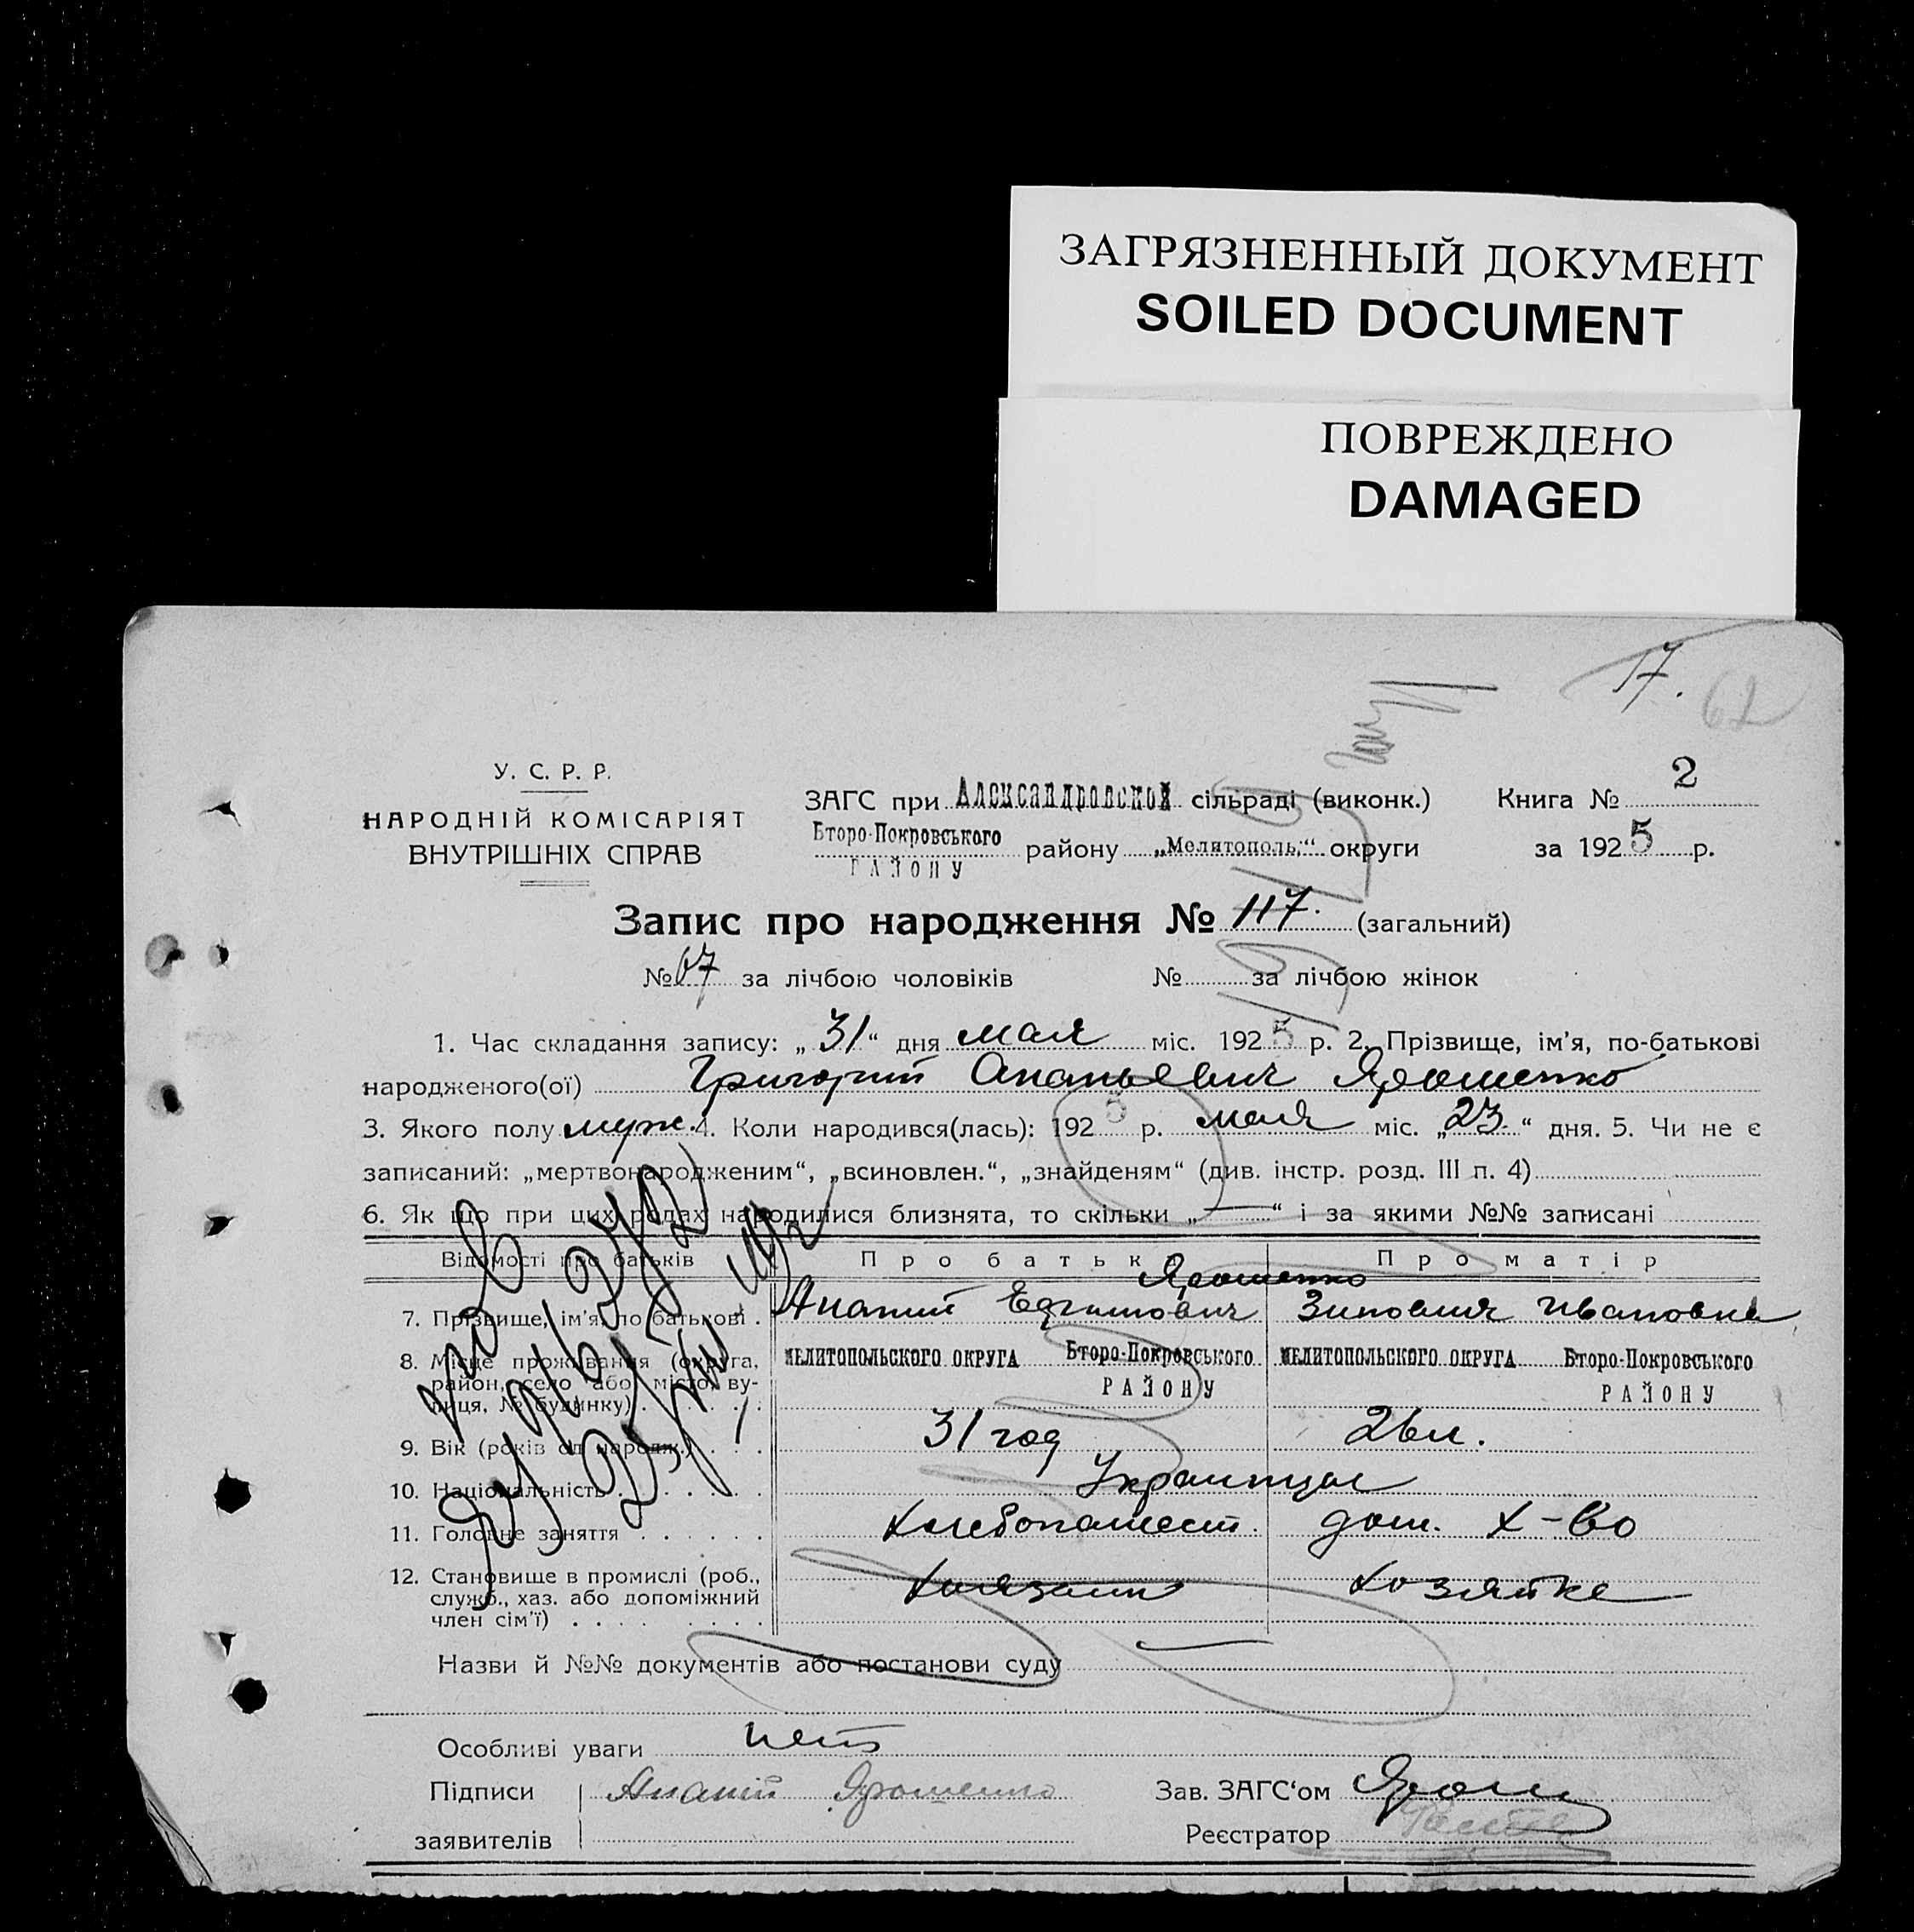 ЗАГРЯЗНЕННЫЙ ДОКУМЕНТ
SOILED DOCUMENT
ПОВРЕЖДЕНО
DAMAGED
17.
62
У. С. Р. Р.
НАРОДНІЙ КОМІСАРІЯТ
ВНУТРІШНІХ СПРАВ
ЗАГС при Александровской сільраді (виконк.)
Второ-Покровського району „Мелитополь." округи
РАЙОНУ
Книга № 2
за 1925 р.
Запис про народження № 117. (загальний)
№ 67 за лічбою чоловіків № за лічбою жінок
1. Час складання запису: „31" дня мая міс. 1925 р. 2. Прізвище, ім'я, по-батькові
народженого(ої) Григорий Ананьевич Ярошенко
3. Якого полу муж. 4. Коли народився(лась): 1925 р. мая міс. „23." дня. 5. Чи не є
записаний: „мертвонародженим", „всиновлен.", „знайденям" (див. інстр. розд. III п. 4)
6. Як що при цих родах народилися близнята, то скільки „—" і за якими №№ записані
Відомості про батьків Про батька Про матір
Ярошенко
7. Прізвище, ім'я, по батькові . Ананий Ефимович Зиновия Ивановна
8. Місце проживання (округа, район, село або місто, вулиця, № будинку) . МЕЛИТОПОЛЬСКОГО ОКРУГА Второ-Покровського РАЙОНУ МЕЛИТОПОЛЬСКОГО ОКРУГА Второ-Покровського РАЙОНУ
9. Вік (років од народж.) . 31 год 26 л.
10. Національність . Украинцы
11. Головне заняття . Хлебопашест. дом. х-во
12. Становище в промислі (роб., служб., хаз. або допоміжний член сім'ї) . Хозяин Хозяйка
Назви й №№ документів або постанови суду
Особливі уваги нет
Підписи Ананій Ярошенко Зав. ЗАГС'ом
заявителів Реєстратор